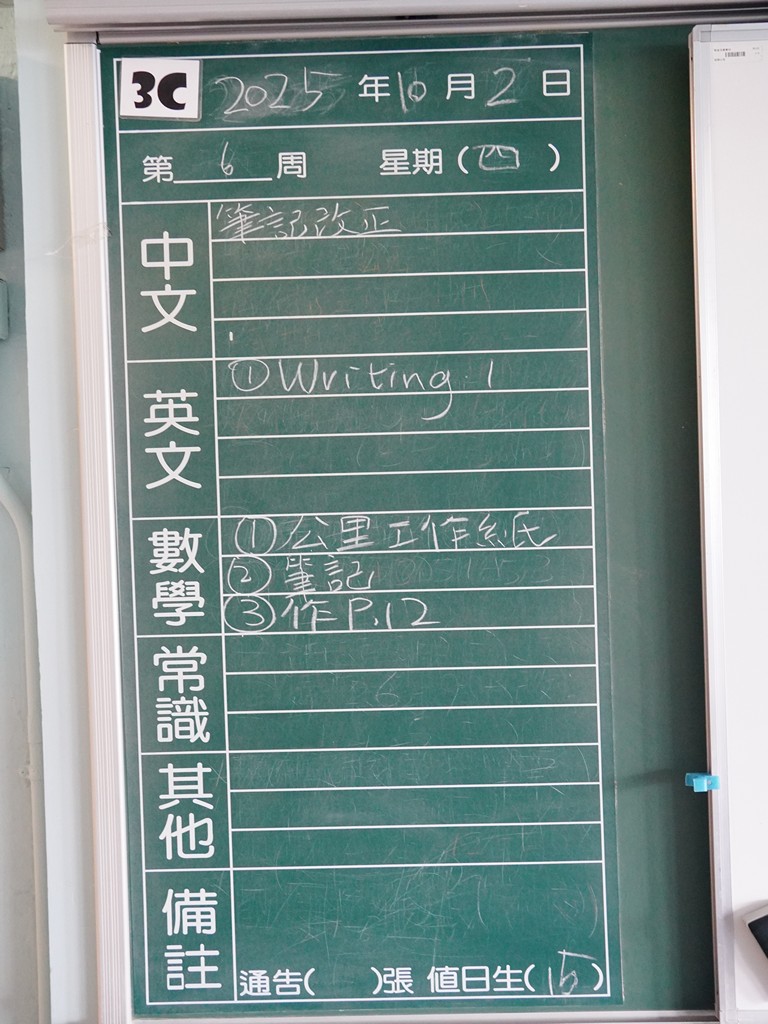 3C 2025 年 10 月 2 日
第 6 周 星期（四）
中文
筆記改正
英文
① Writing 1
數學
① 公里工作紙
② 筆記
③ 作 P.12
常識
其他
備註
通告( )張 值日生( 15 )